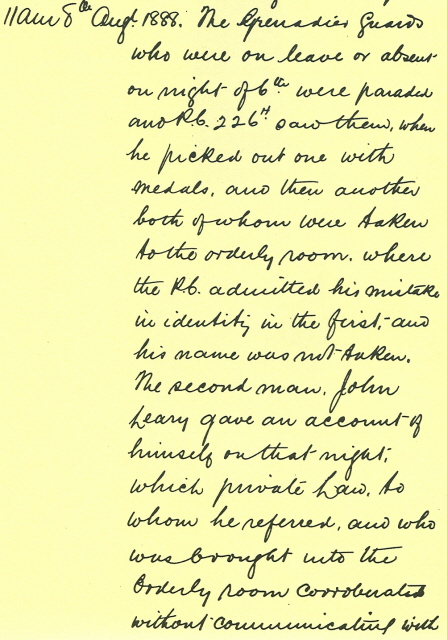 11am 8th Augt. 1888. The Grenadier Guards
who were on leave or absent
on night of 6th were paraded
and P.C. 226H saw them, when
he picked out one with
medals, and then another
both of whom were taken
to the orderly room. where
the P.C. admitted his mistake
in identity in the first, and
his name was not taken.
The second man. John
Leary gave an account of
himself on that night,
which private Law, to
whom he referred, and who
was brought into the
Orderly room corroberated
without communicating with